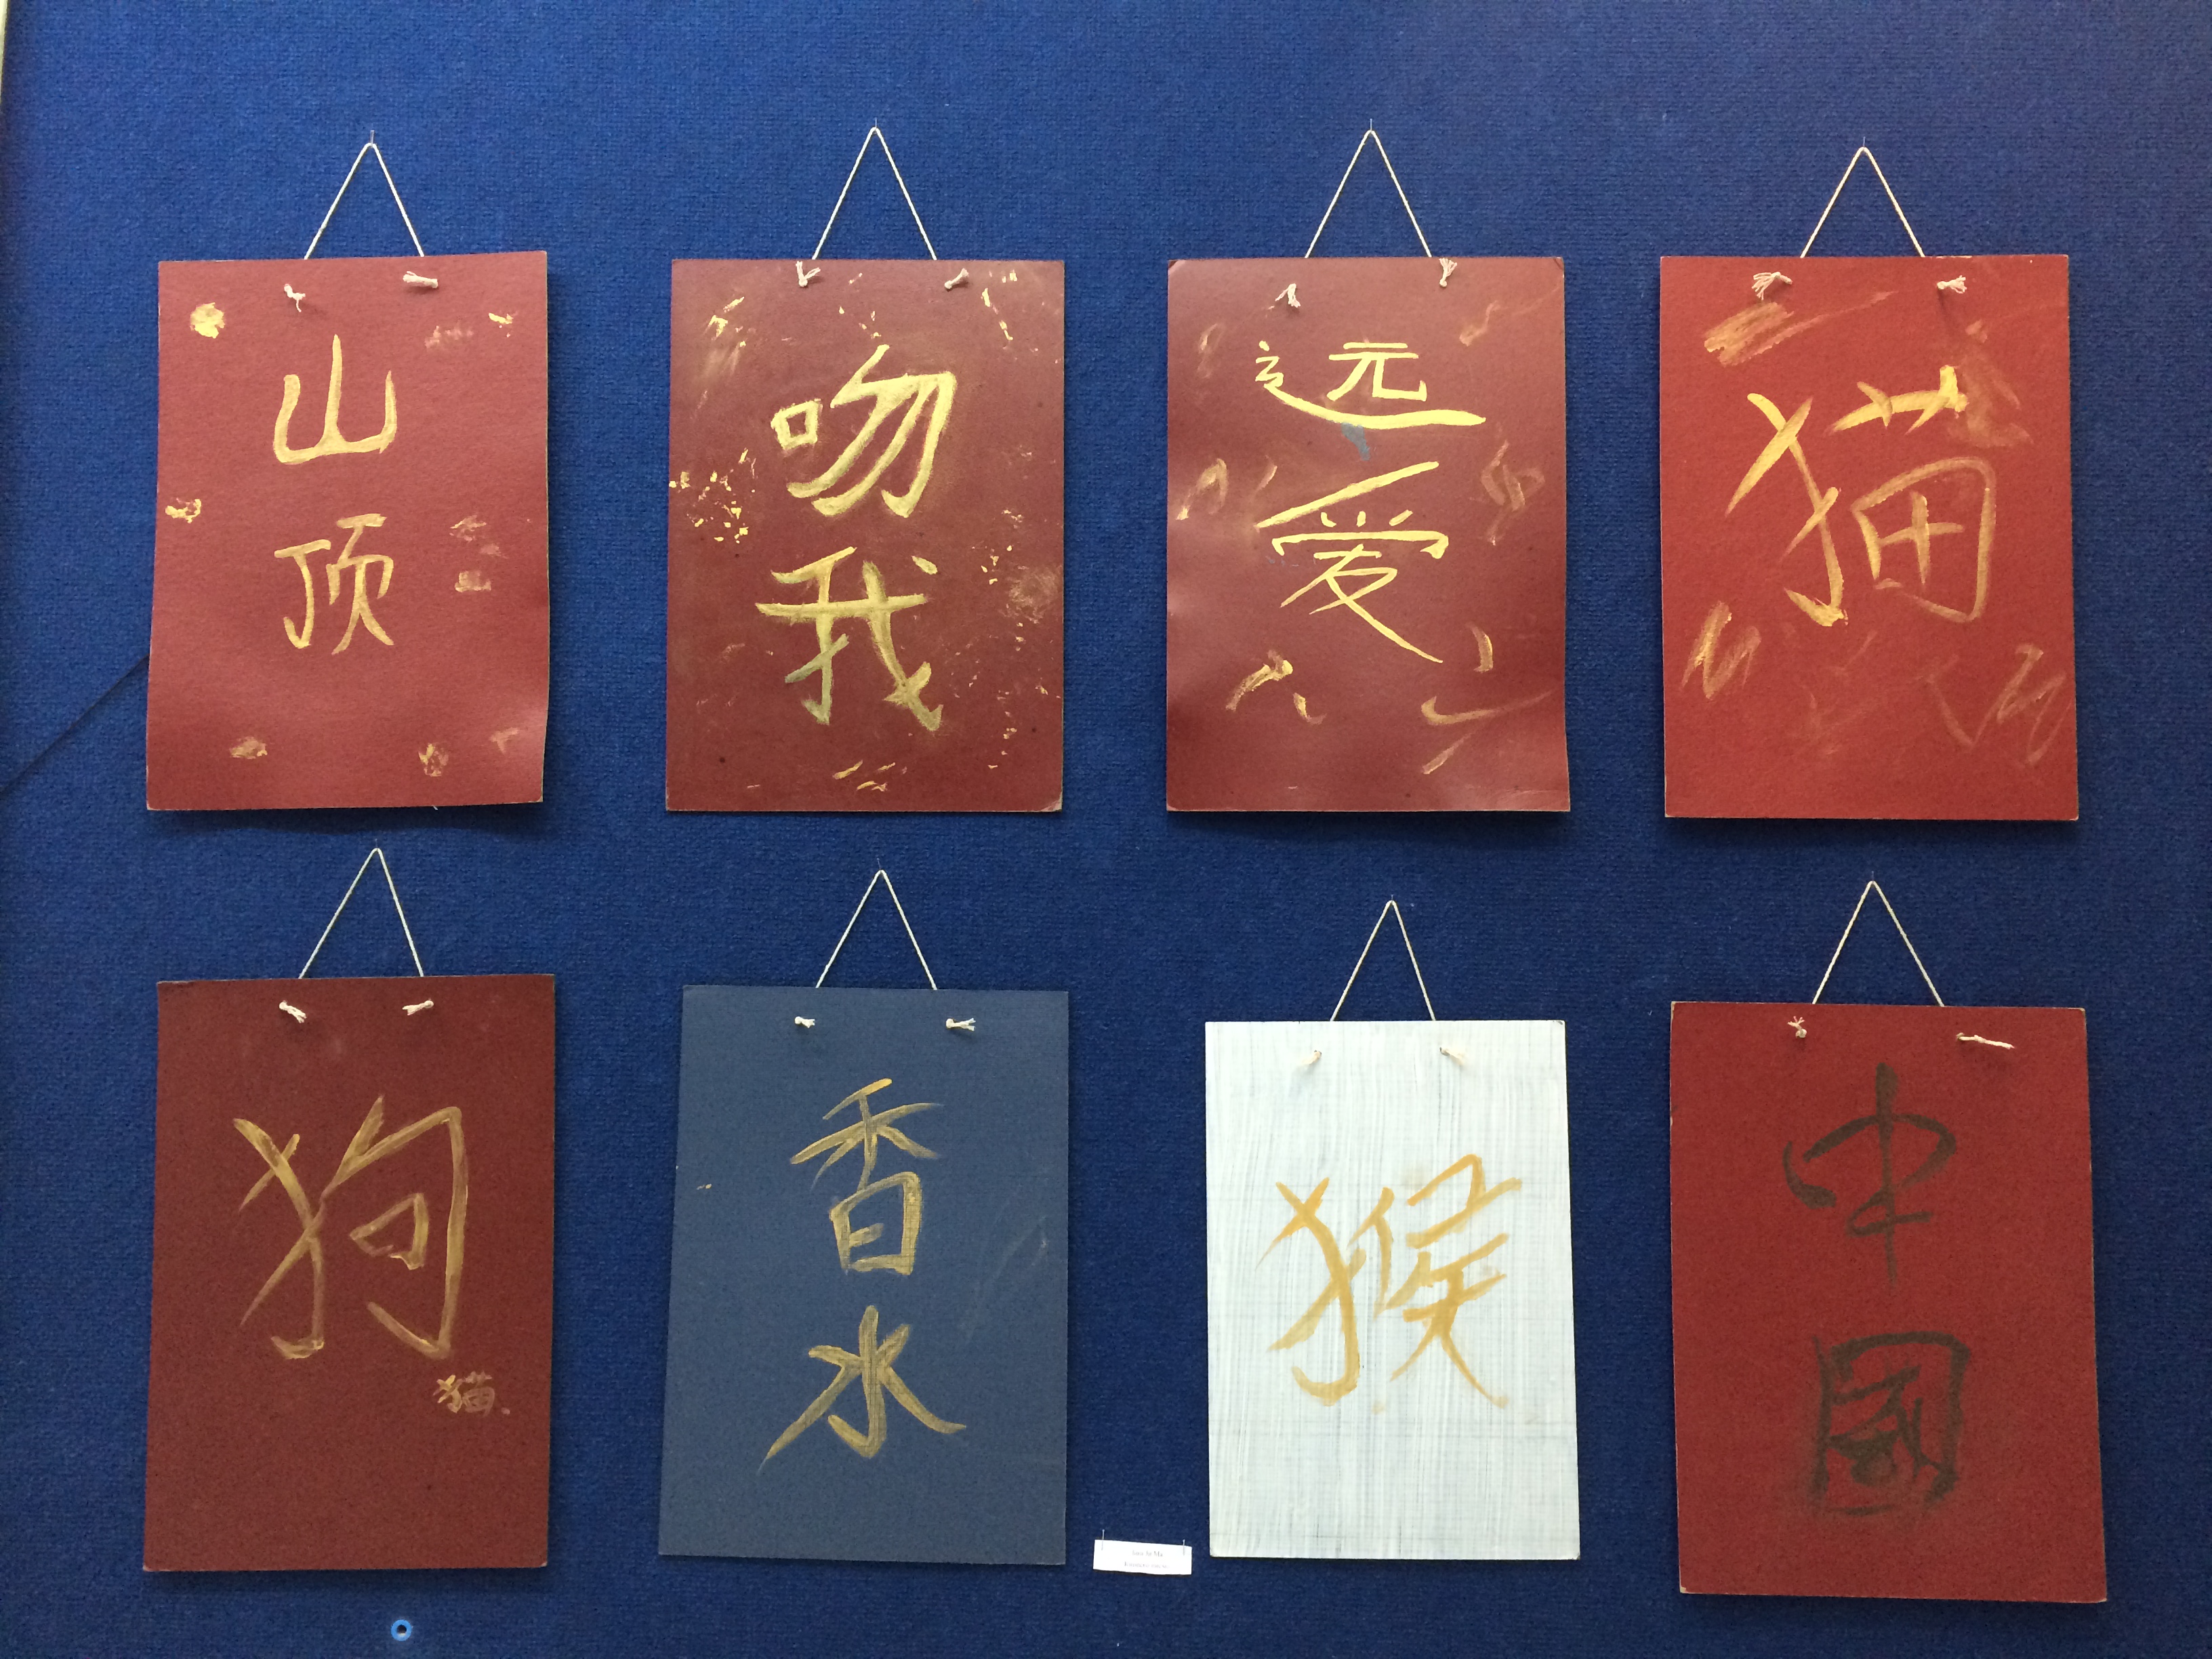 山
顶
吻
我
远
爱
猫
狗
猫
香
水
猴
中
國